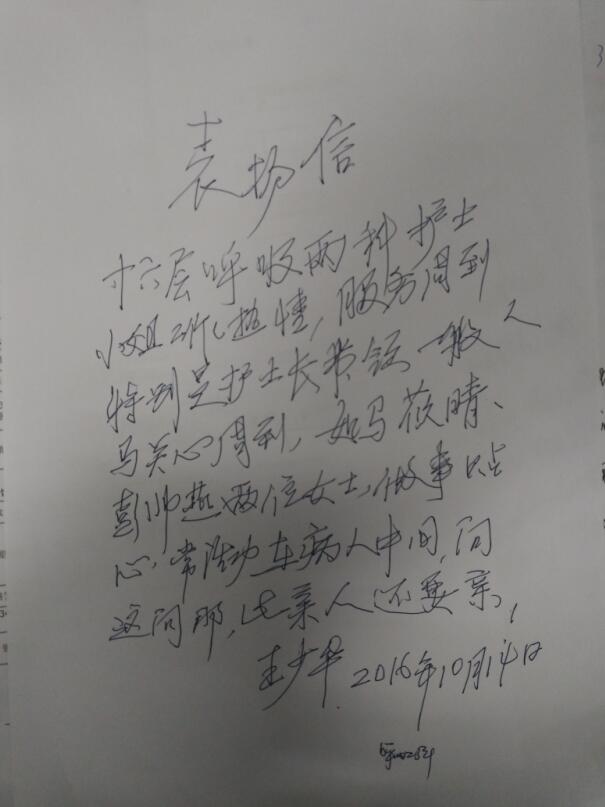 表扬信
十六层呼吸两科护士
小姐工作热情，服务周到
特别是护士长带领一般人
马关心周到，如马莜晴、
彭帅燕两位女士，做事
心，常活动在病人中间，问
这问那，比亲人还要亲，
王少华 2016年10月14日